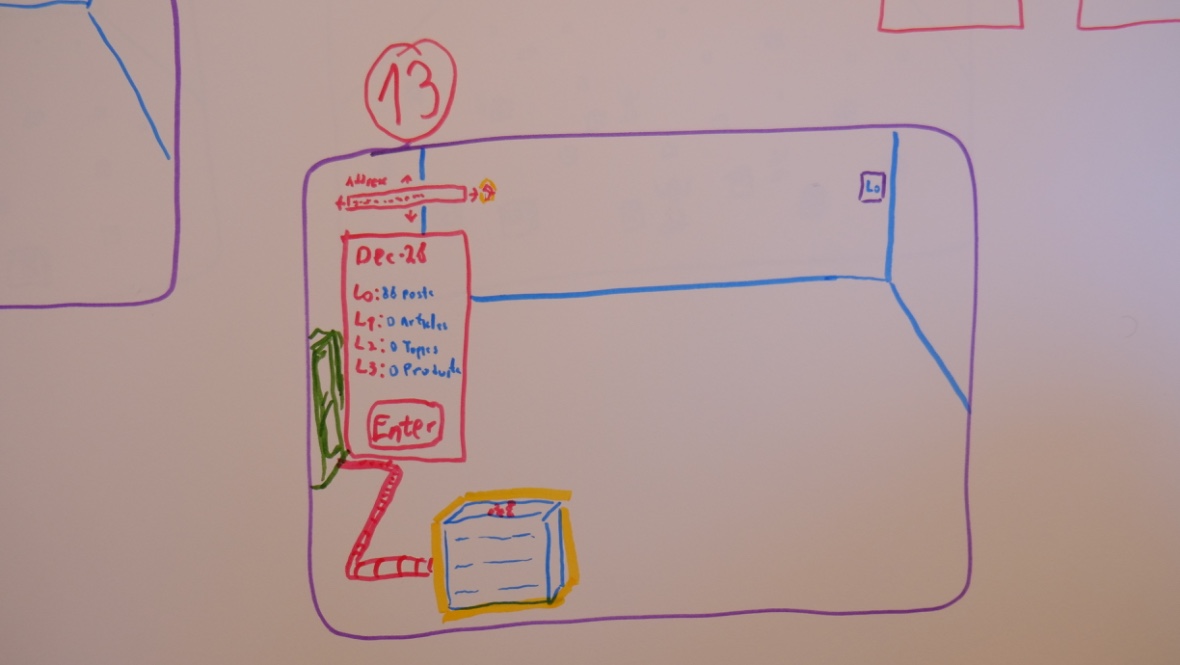 13
Address
Lo
Dec-28
L0: 88 Posts
L1: 0 Articles
L2: 0 Topics
L3: 0 Products
Enter